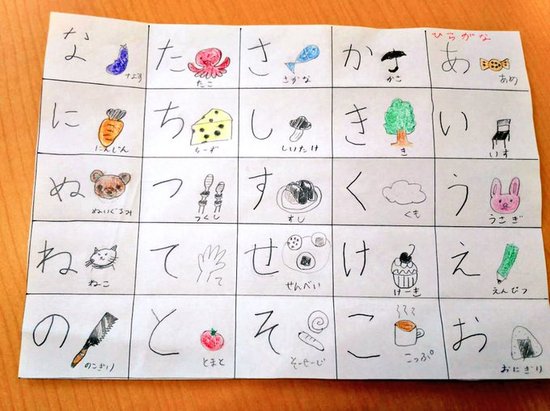 ひらがな
あ
あめ
い
いす
う
うさぎ
え
えんぴつ
お
おにぎり
か
かさ
き
き
く
くも
け
けーき
こ
こっぷ
さ
さかな
し
しいたけ
す
すし
せ
せんべい
そ
そーせーじ
た
たこ
ち
ちーず
つ
つくし
て
て
と
とまと
な
なす
に
にんじん
ぬ
ぬいぐるみ
ね
ねこ
の
のこぎり